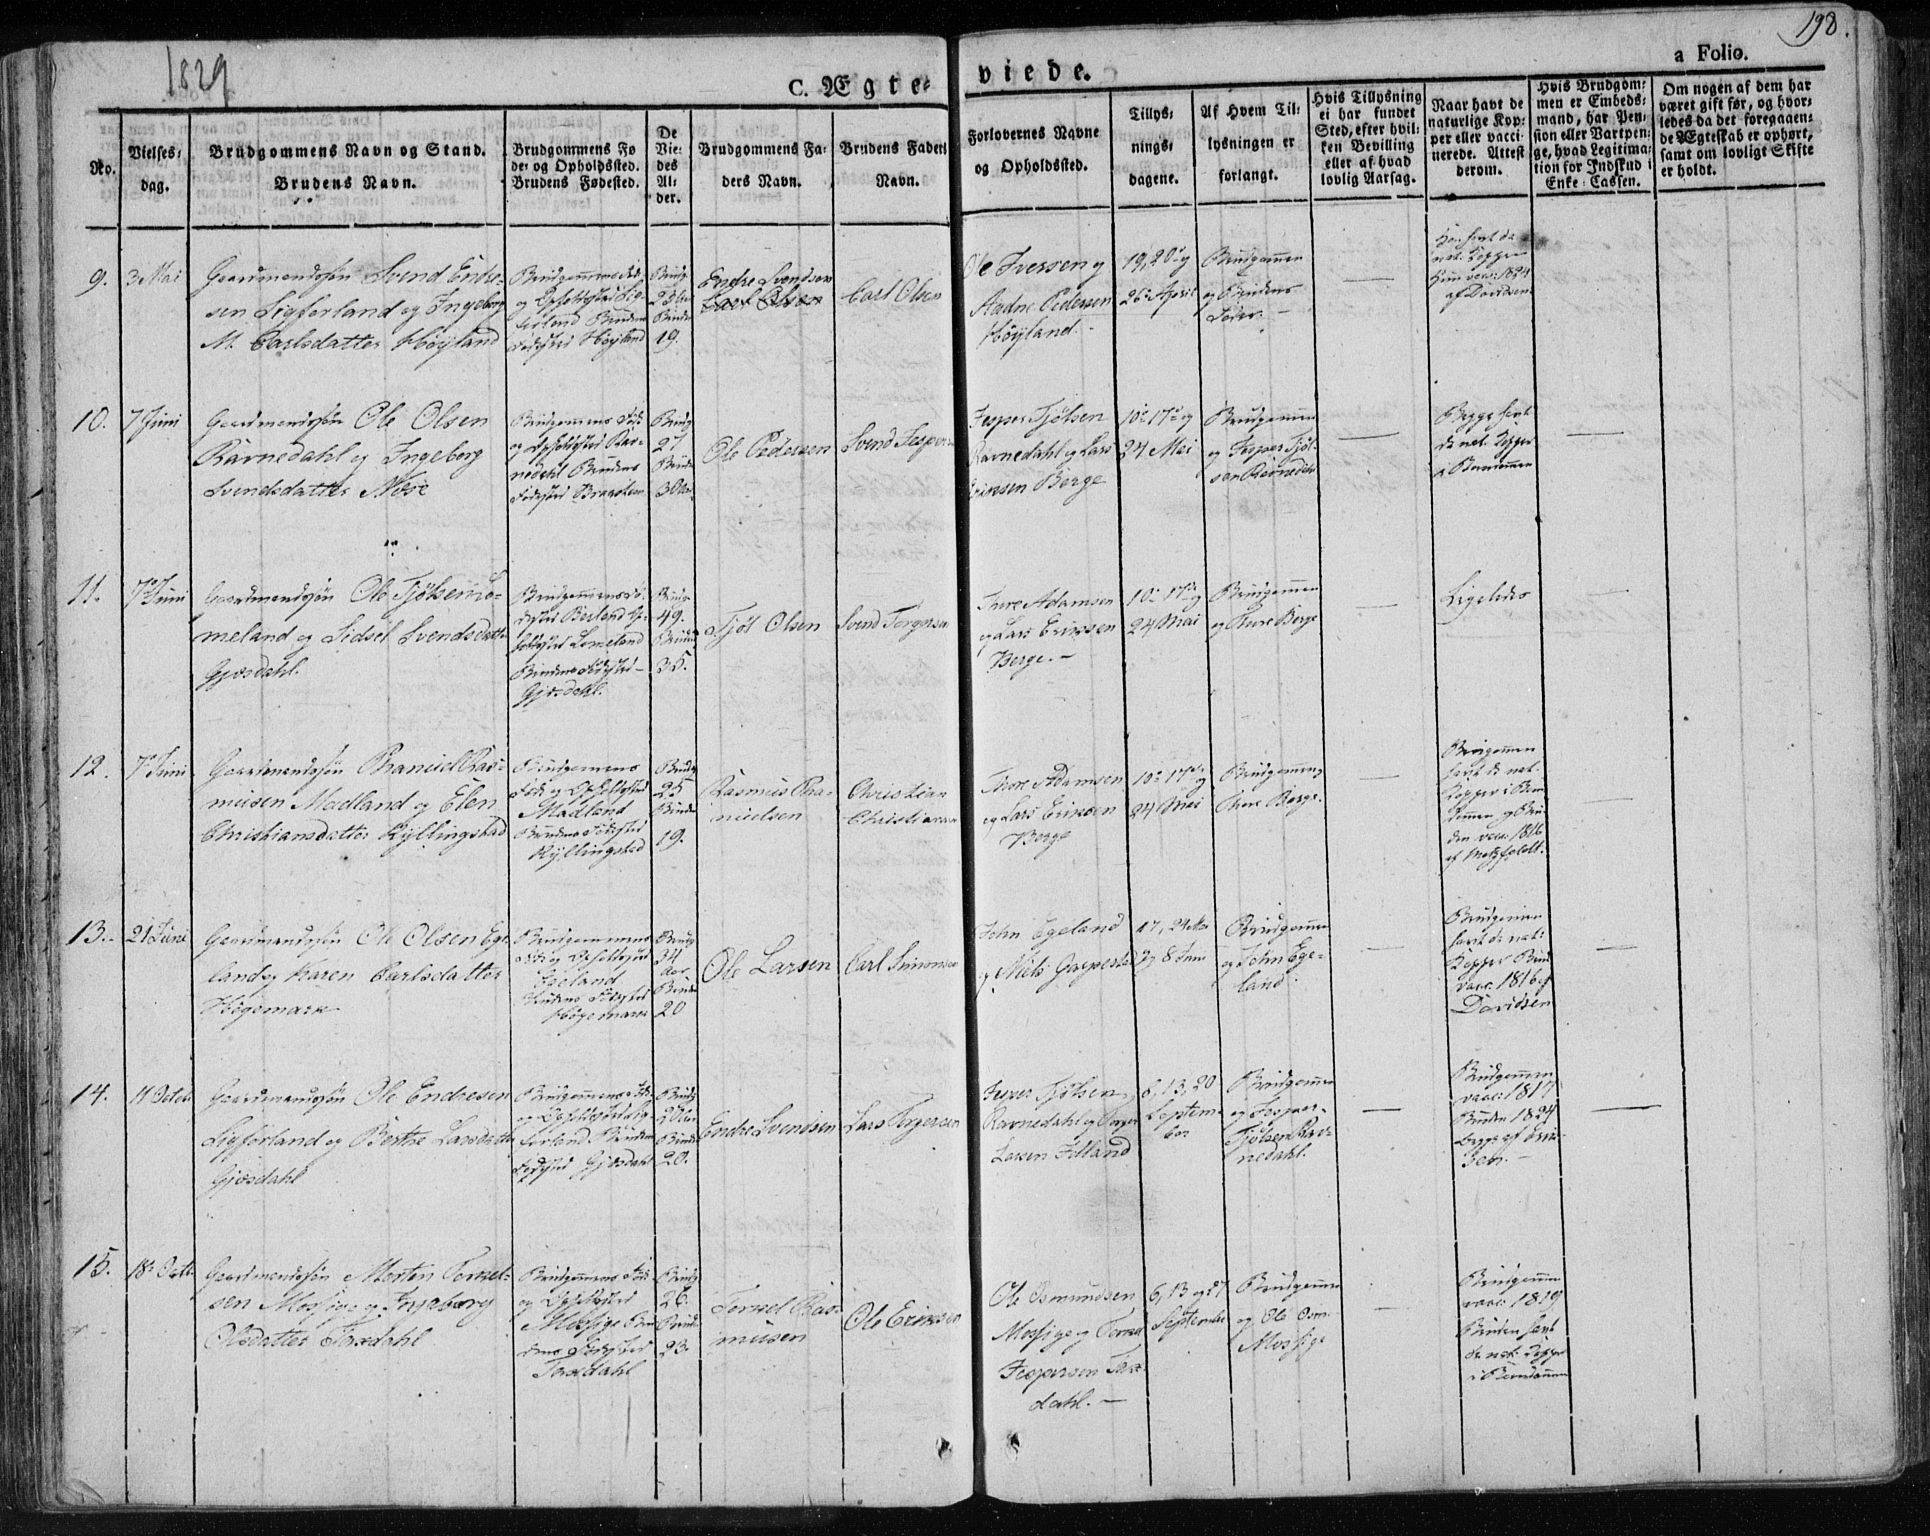 1829
198.
C. Ægte-
viede.
a Folio.
No.
Vielses-
dag.
Brudgommens Navn og Stand.
Brudens Navn.
Brudgommens Fø
de- og Opholdssted.
Brudens Fødested.
De
Vie-
des
Al-
der.
Brudgommens Fa-
ders Navn.
Brudens Faders
Navn.
Forlovernes Navne
og Opholdssted.
Tillys-
nings-
dagene.
Af Hvem Til-
lysningen er
forlangt.
Hvis Tillysning
ei har fundet
Sted, efter hvil-
ken Bevilling
eller af hvad
lovlig Aarsag.
Naar havt de
naturlige Kop-
per eller vacci-
nerede. Attest
derom.
Hvis Brudgom-
men er Embeds-
mand, har Pen-
sion eller Vartpen-
ge, hvad Legitima-
tion for Indskud i
Enke-Cassen.
Om nogen af dem har
været gift før, og hvor-
ledes da det foregaaen-
de Ægteskab er ophørt,
samt om lovligt Skifte
er holdt.
9.
3 Mai
Gaardmandssøn Svend Endre-
sen Ligferland og Ingeborg
M. Carlsdatter Høyland
Brudgommens Føde
og Opholdssted Lig-
ferland Brudens
Fødested Høyland
Brudg.
23
Bruden
19.
Endre Svendsen
Carl Olsen
Carl Olsen
Ole Iversen og
Aadne Pedersen
Høyland.
19, 20 og
26 April
Brudgommen
og Brudens
Fader.
Han havt de
nat. Kopper
Hun vacc. 1824
af Davidsen
10.
7 Juni
Gaardmandssøn Ole Olsen
Ravnedahl og Ingeborg
Svendsdatter Næse
Brudgommens Føde
og Opholdssted Rav-
nedahl Brudens
Fødested
Brudg
27
Bruden
30
Ole Pedersen
Svend Jespersen
Jesper Tjølsen
Ravnedahl og Lars
Eriksen Berge
10 17 og
24 Mai
Brudgommen
og Jesper Tjøl-
sen Ravnedahl
Begge havt
de nat. Kopper
i Barndommen
11.
7 Juni
Gaardmandssøn Ole Tjølsen Lo-
meland og Sidsel Svendsdatter
Gjæsdahl.
Brudgommens Fø-
dested Berland Op-
holdssted Lomeland
Brudens Fødested
Gjæsdahl.
Brudg.
49.
Bruden
35.
Tjøl Olsen
Svend Torgersen
Thore Adamsen
og Lars Eriksen
Berge.
10 17 og
24 Mai
Brudgommen
og Thore Berge
Ligeledes
12.
7 Juni
Gaardmandssøn Thaniel Ras-
musen Madland og Elen
Christiansdatter Kyllingstad
Brudgommens
Føde og Opholdssted
Madland
Brudens Fødested
Kyllingstad
Brudg
25
Bruden
19.
Rasmus Tha-
nielsen
Christian
Christiansen
Thore Adamsen
og Lars Eriksen
Berge
10 17 og
24 Mai
Brudgommen og
Thore Berge.
Brudgommen
havt de nat.
Kopper i Barn-
dommen og Bru-
den vacc. 1816
af Metzfeldt.
13.
21 Juni
Gaardmandssøn Ole Olsen Ege-
land og Karen Carlsdatter
Høgemark
Brudgommens
Føde og Opholdssted
Egeland
Brudens Fødested
Høgemark
Brudg
34
Aar
Bruden
20
Ole Larsen
Carl Simonsen
John Egeland
og Niels
17, 24 Mai
og 8 Juni
Brudgommen
og John Ege-
land.
Brudgommen
havt de nat.
Kopper Brud.
vacc. 1816 af
Davidsen
14.
11 Octob.
Gaardmandssøn Ole Endresen
Ligferland og Berthe Larsdatter
Gjæsdahl
Brudgommens Føde
og Opholdssted Lig-
ferland Brudens
Fødested Gjæsdahl
Brudg
Bruden
20.
Endre Svendsen
Lars Torgersen
Tjølsen
Ravnedahl og Torger
Larsen
6, 13, 20
Septem-
ber
Brudgommen
og Jesper
Tjølsen Rav-
nedahl.
Brudgommen
vacc. 1817
Bruden 1824
begge af David-
sen.
15.
18 Octb.
Gaardmandssøn Morten Torkel-
sen Mossige og Ingeborg
Olsdatter Taxdahl
Brudgommens Føde
og Opholdssted
Mossige Bru-
dens Fødested
Taxdahl
Brudg
26.
Bruden
23.
Torkel Ras-
musen
Ole Eriksen
Ole Osmundsen
Mossige og Torkel
Jespersen Tax-
dahl.
6, 13 og 27
September
Brudgommen
og Ole Osm.
Mossige
Brudgommen
vacc. 1819
Bruden havt
de nat. Kopper
i Barndommen